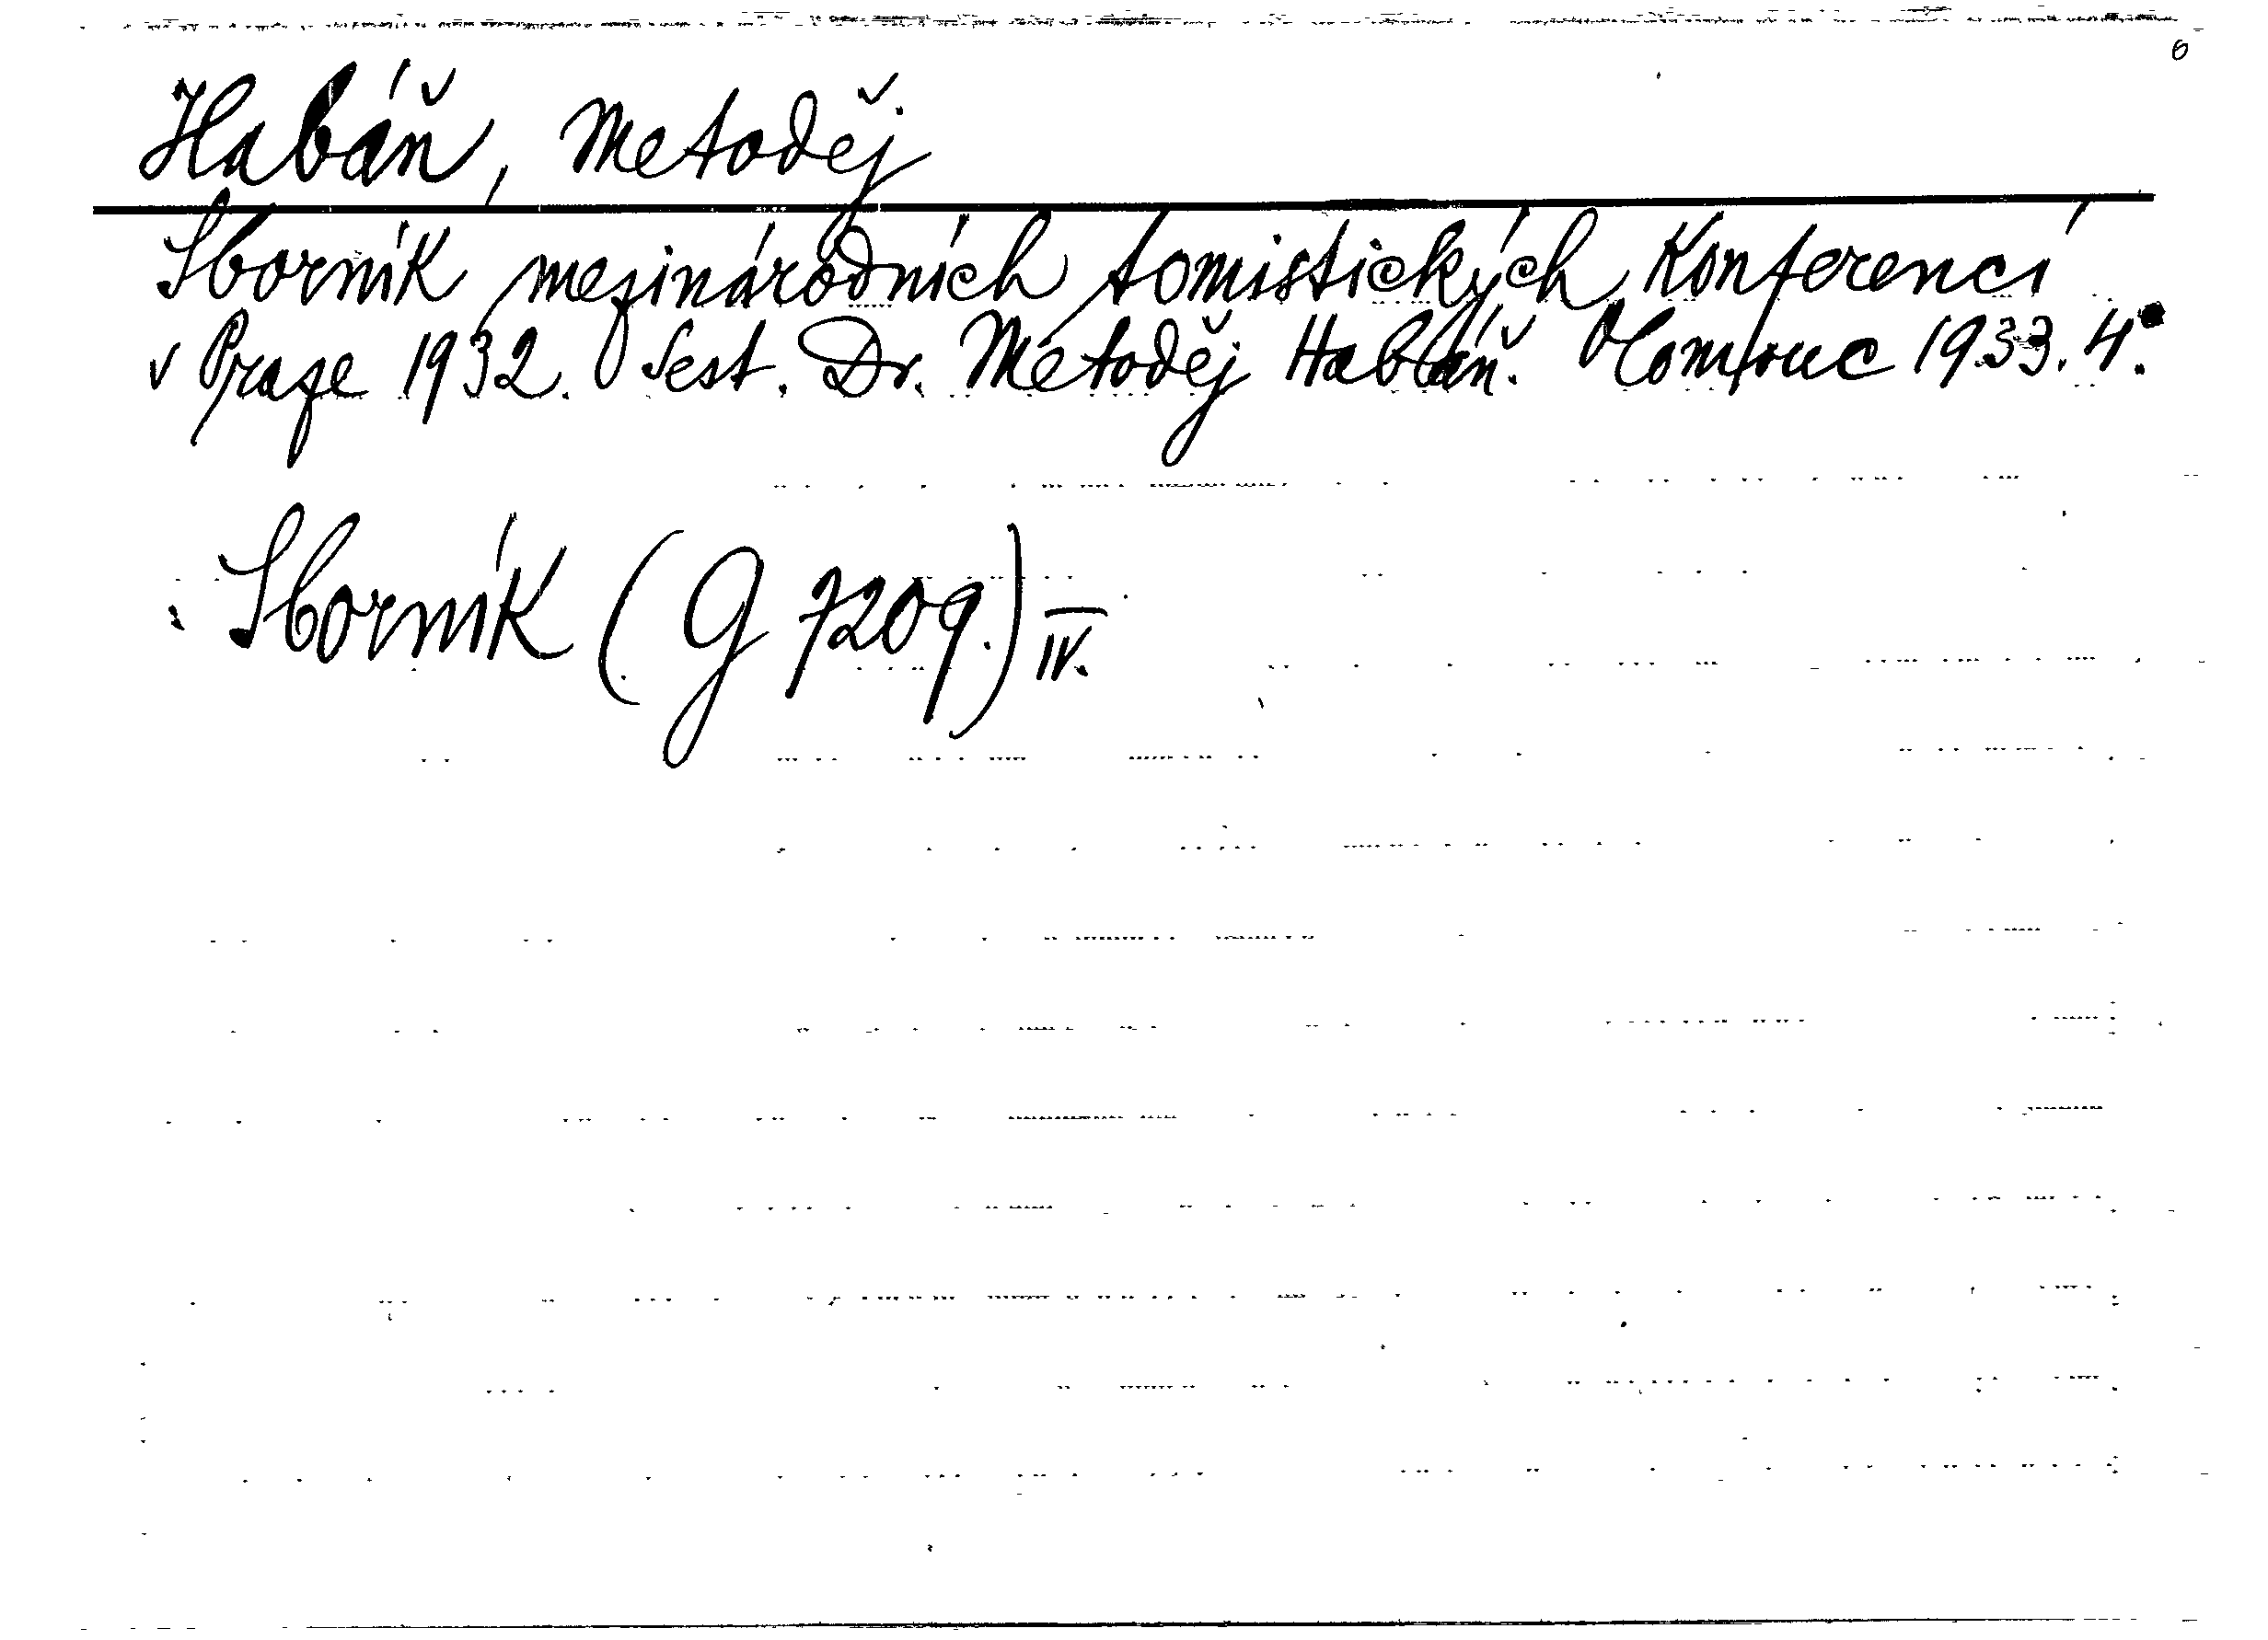 6
Habáň, Metoděj
Sborník mezinárodních tomistických konferencí
v Praze 1932. Sest. Dr. Metoděj Habáň. Olomouc 1933. 4°.
Sborník (G 7209.) IV.